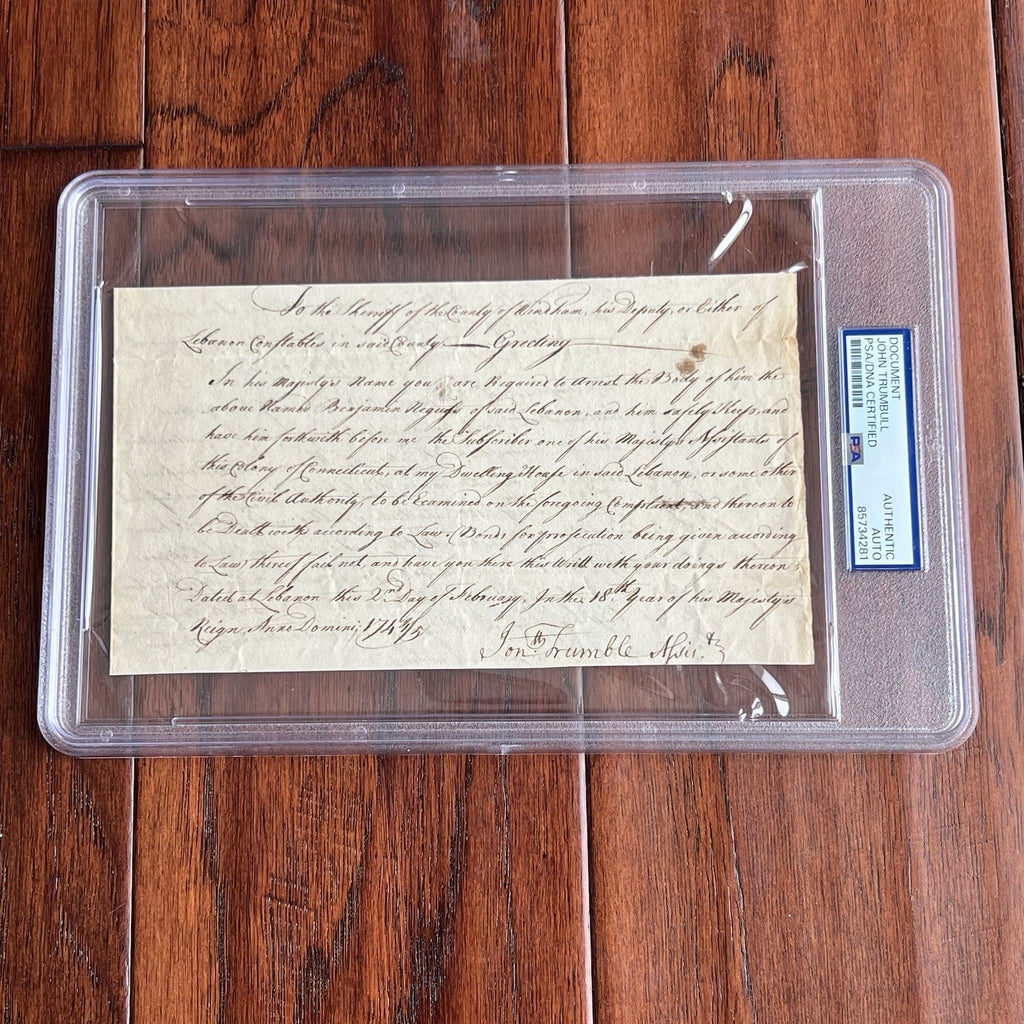 To the Sherriff of the County of Windham, his Deputy, or Either of
Lebanon Constables in said County — Greeting
In his Majestys Name you are Required to Arrest the Body of him the
above Named Benjamin of said Lebanon, and him safely Keep and
have him forthwith before me the Subscriber one of his Majestys Assistants of
this Colony of Connecticut, at my Dwelling House in said Lebanon, or some other
of the Civil Authority, to be Examined on the foregoing Complaint and thereon to
be Dealt with according to Law. (Bonds for prosecution being given according
to Law) thereof fail not, and have you there this Writt with your doings thereon
Dated at Lebanon this 2nd Day of February, In the 18th Year of his Majestys
Reign, Anno Domini; 1744/5
Jonth Trumble Assist
DOCUMENT
JOHN TRUMBULL
PSA/DNA CERTIFIED
PSA
AUTHENTIC
AUTO
85734281